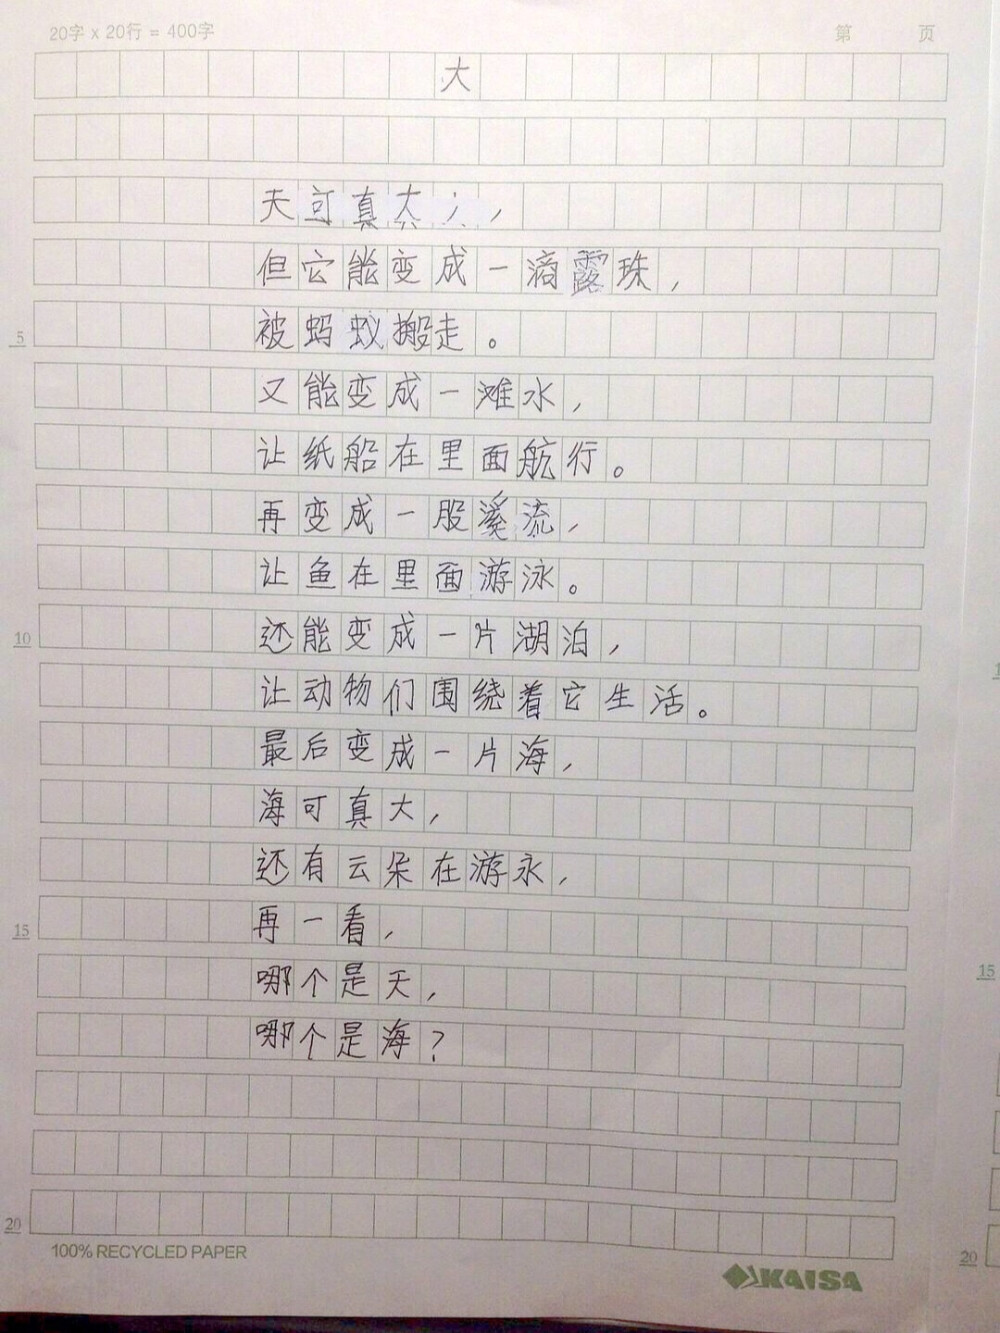 20字 x 20行 = 400字
第 页
大
天可真大，
但它能变成一滴露珠，
5
被蚂蚁搬走。
又能变成一滩水，
让纸船在里面航行。
再变成一股溪流，
让鱼在里面游泳。
10
还能变成一片湖泊，
让动物们围绕着它生活。
最后变成一片海，
海可真大，
还有云朵在游永，
15
再一看，
哪个是天，
15
哪个是海？
20
20
100% RECYCLED PAPER
KAISA